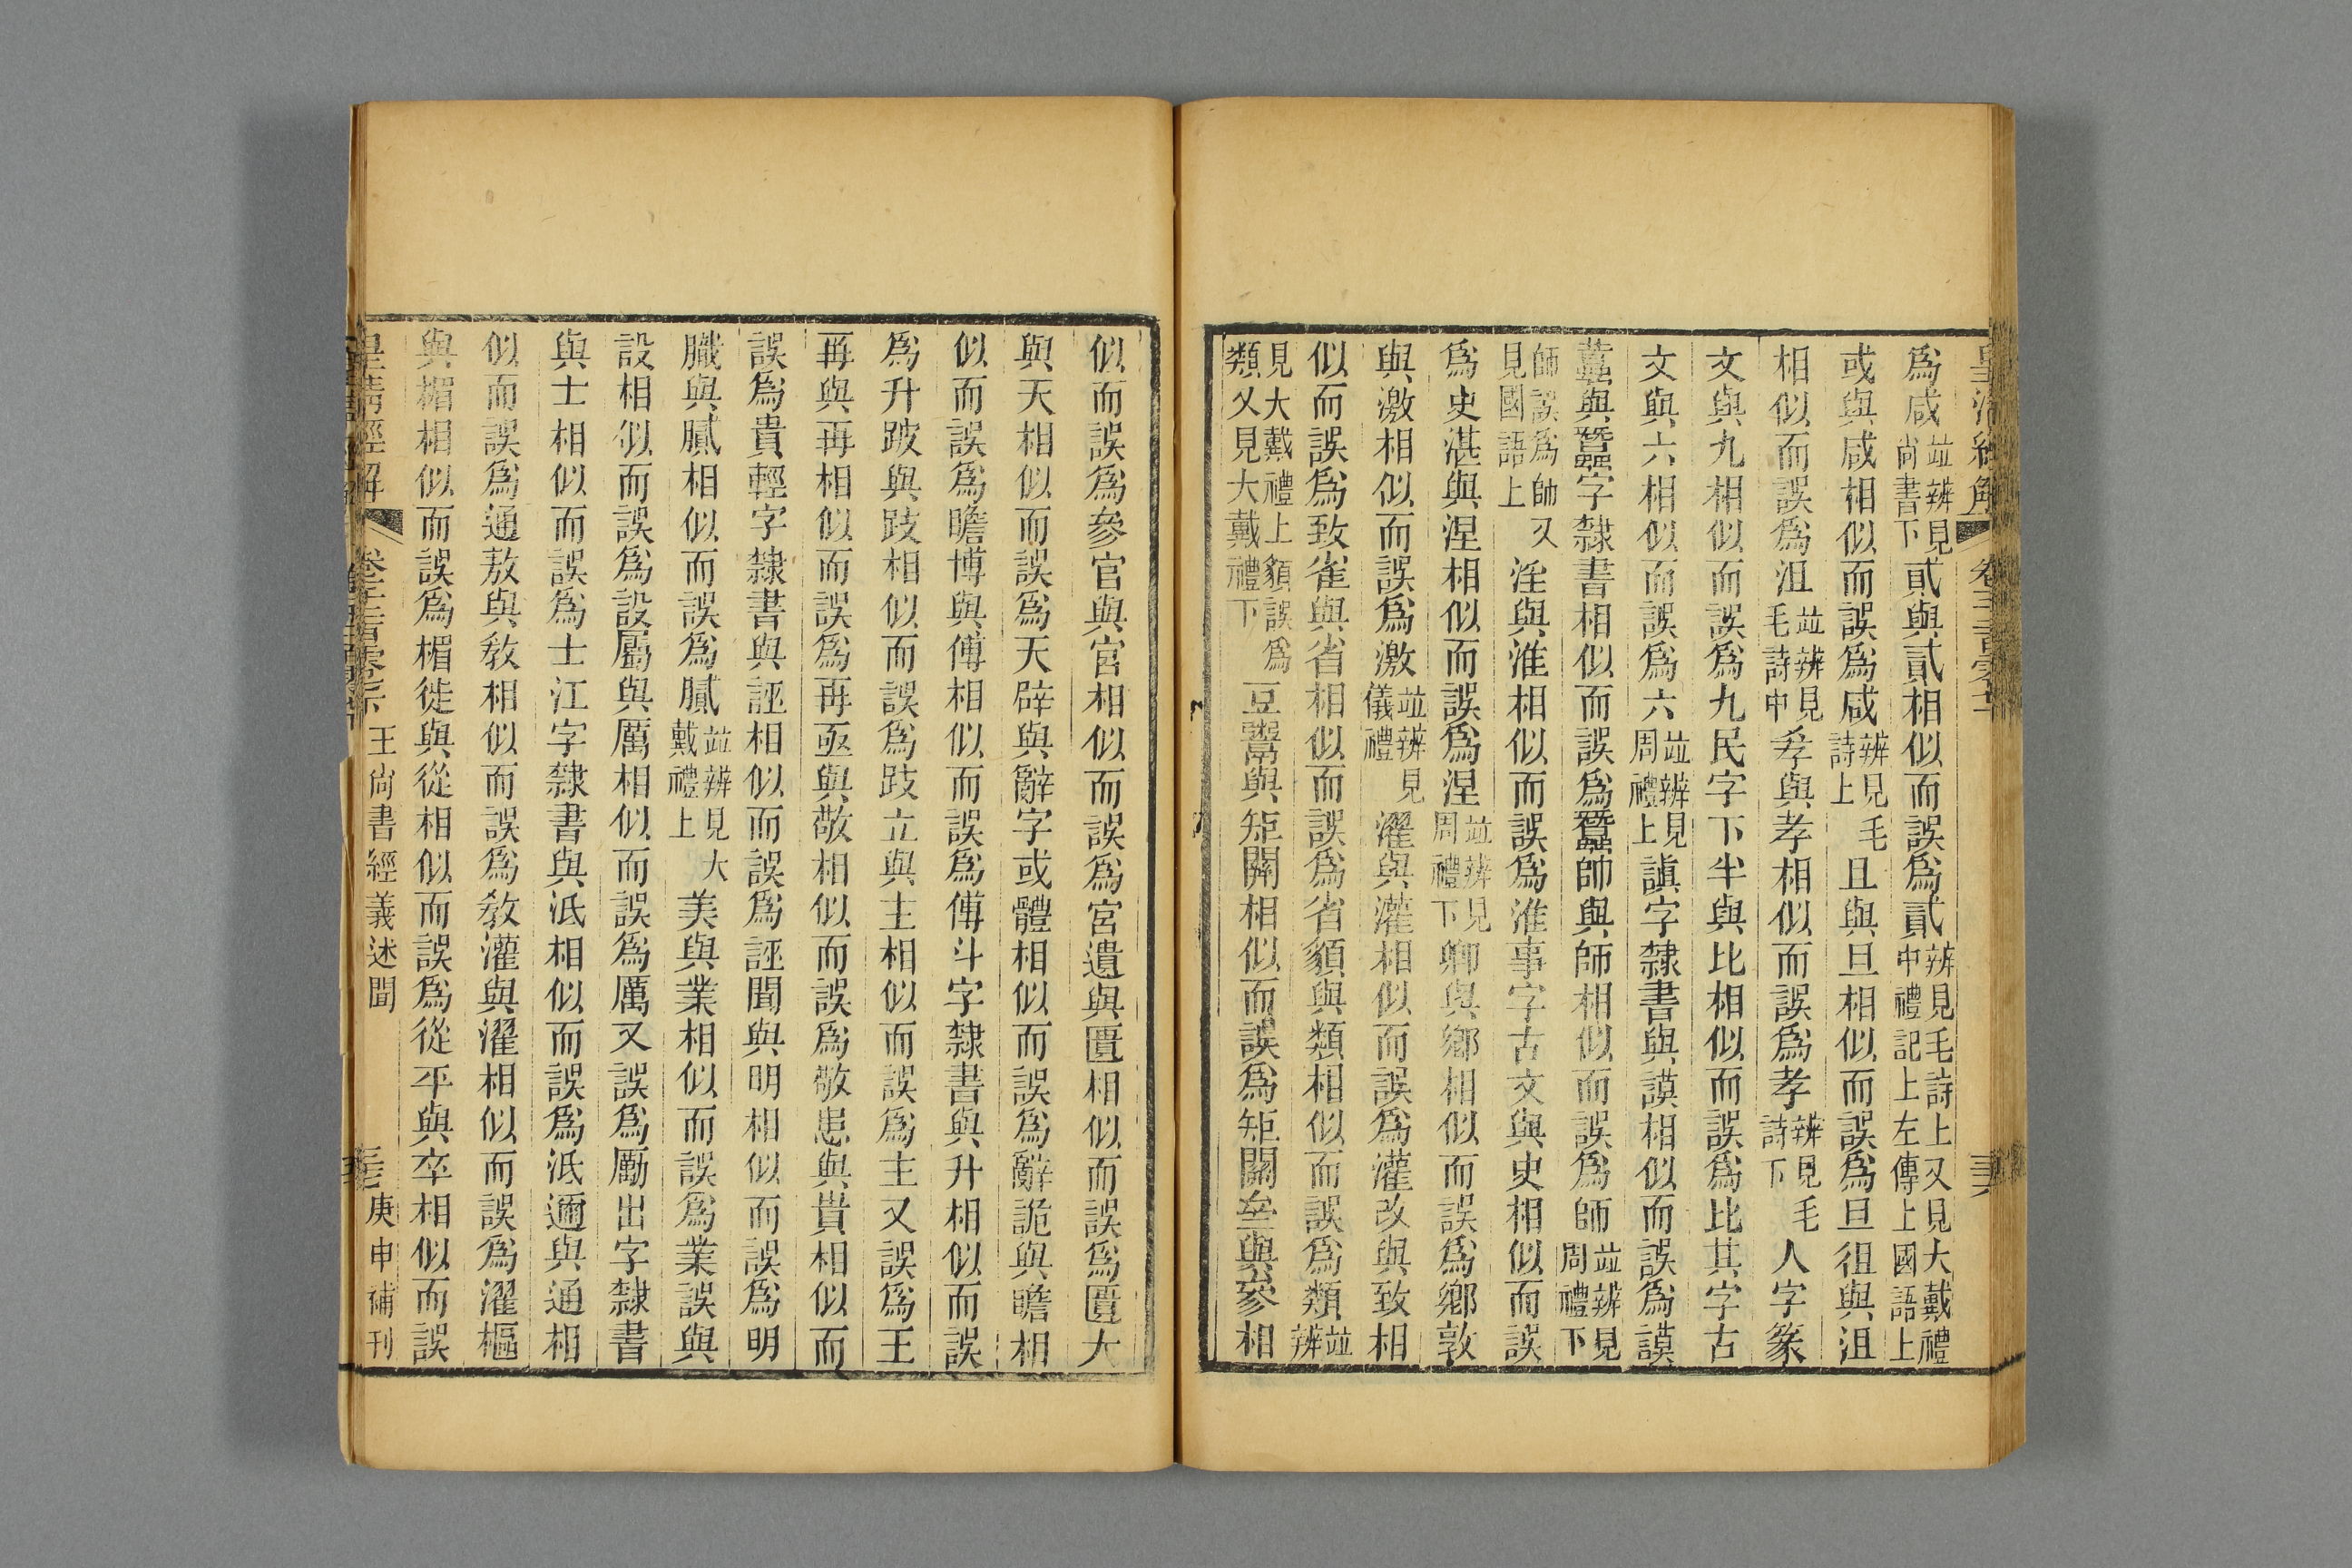 爲咸並辨見尚書下貳與貳相似而誤爲貳辨見毛詩上又見大戴禮中禮記上左傳上國語上
或與咸相似而誤爲咸辨見毛詩上且與旦相似而誤爲旦徂與沮
相似而誤爲沮並辨見毛詩中孚與孝相似而誤爲孝辨見毛詩下人字篆
文與九相似而誤爲九民字下半與比相似而誤爲比其字古
文與六相似而誤爲六並辨見周禮上謓字隸書與謨相似而誤爲謨
與蠶字隸書相似而誤爲蠶帥與師相似而誤爲師並辨見周禮下
師誤爲帥又見國語上淫與淮相似而誤爲淮事字古文與史相似而誤
爲史湛與涅相似而誤爲涅並辨見周禮下卿與鄉相似而誤爲鄉敦
與激相似而誤爲激並辨見儀禮濯與灌相似而誤爲灌改與致相
似而誤爲致雀與省相似而誤爲省額與類相似而誤爲類並辨
見大戴禮上額誤爲類又見大戴禮下豆與矩關相似而誤爲矩關與參相
似而誤爲參官與宮相似而誤爲宮遺與匱相似而誤爲匱大
與天相似而誤爲天辟與辭字或體相似而誤爲辭詭與瞻相
似而誤爲瞻博與傅相似而誤爲傅斗字隸書與升相似而誤
爲升跛與跂相似而誤爲跂立與主相似而誤爲主又誤爲王
再與再相似而誤爲再亟與敬相似而誤爲敬患與貴相似而
誤爲貴輕字隸書與誣相似而誤爲誣聞與明相似而誤爲明
臟與膩相似而誤爲膩並辨見大戴禮上美與業相似而誤爲業誤與
設相似而誤爲設屬與厲相似而誤爲厲又誤爲勵出字隸書
與士相似而誤爲士江字隸書與泜相似而誤爲泜邇與通相
似而誤爲通敖與敎相似而誤爲敎灌與濯相似而誤爲濯樞
與楣相似而誤爲楣徙與從相似而誤爲從平與卒相似而誤
皇淸經解 王尙書經義述聞 庚申補刊